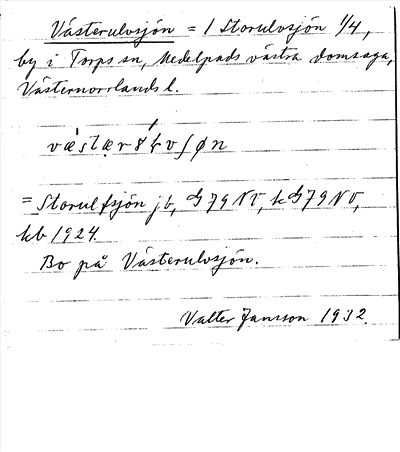 Västerulvsjön = 1 Storulvsjön 1/4,
by i Torps sn, Medelpads västra domsaga,
Västernorrlands l.
= Storulfsjön jb, G79NV, kG79NV,
kb 1924.
Bo på Västerulvsjön.
Valter Jansson 1932.